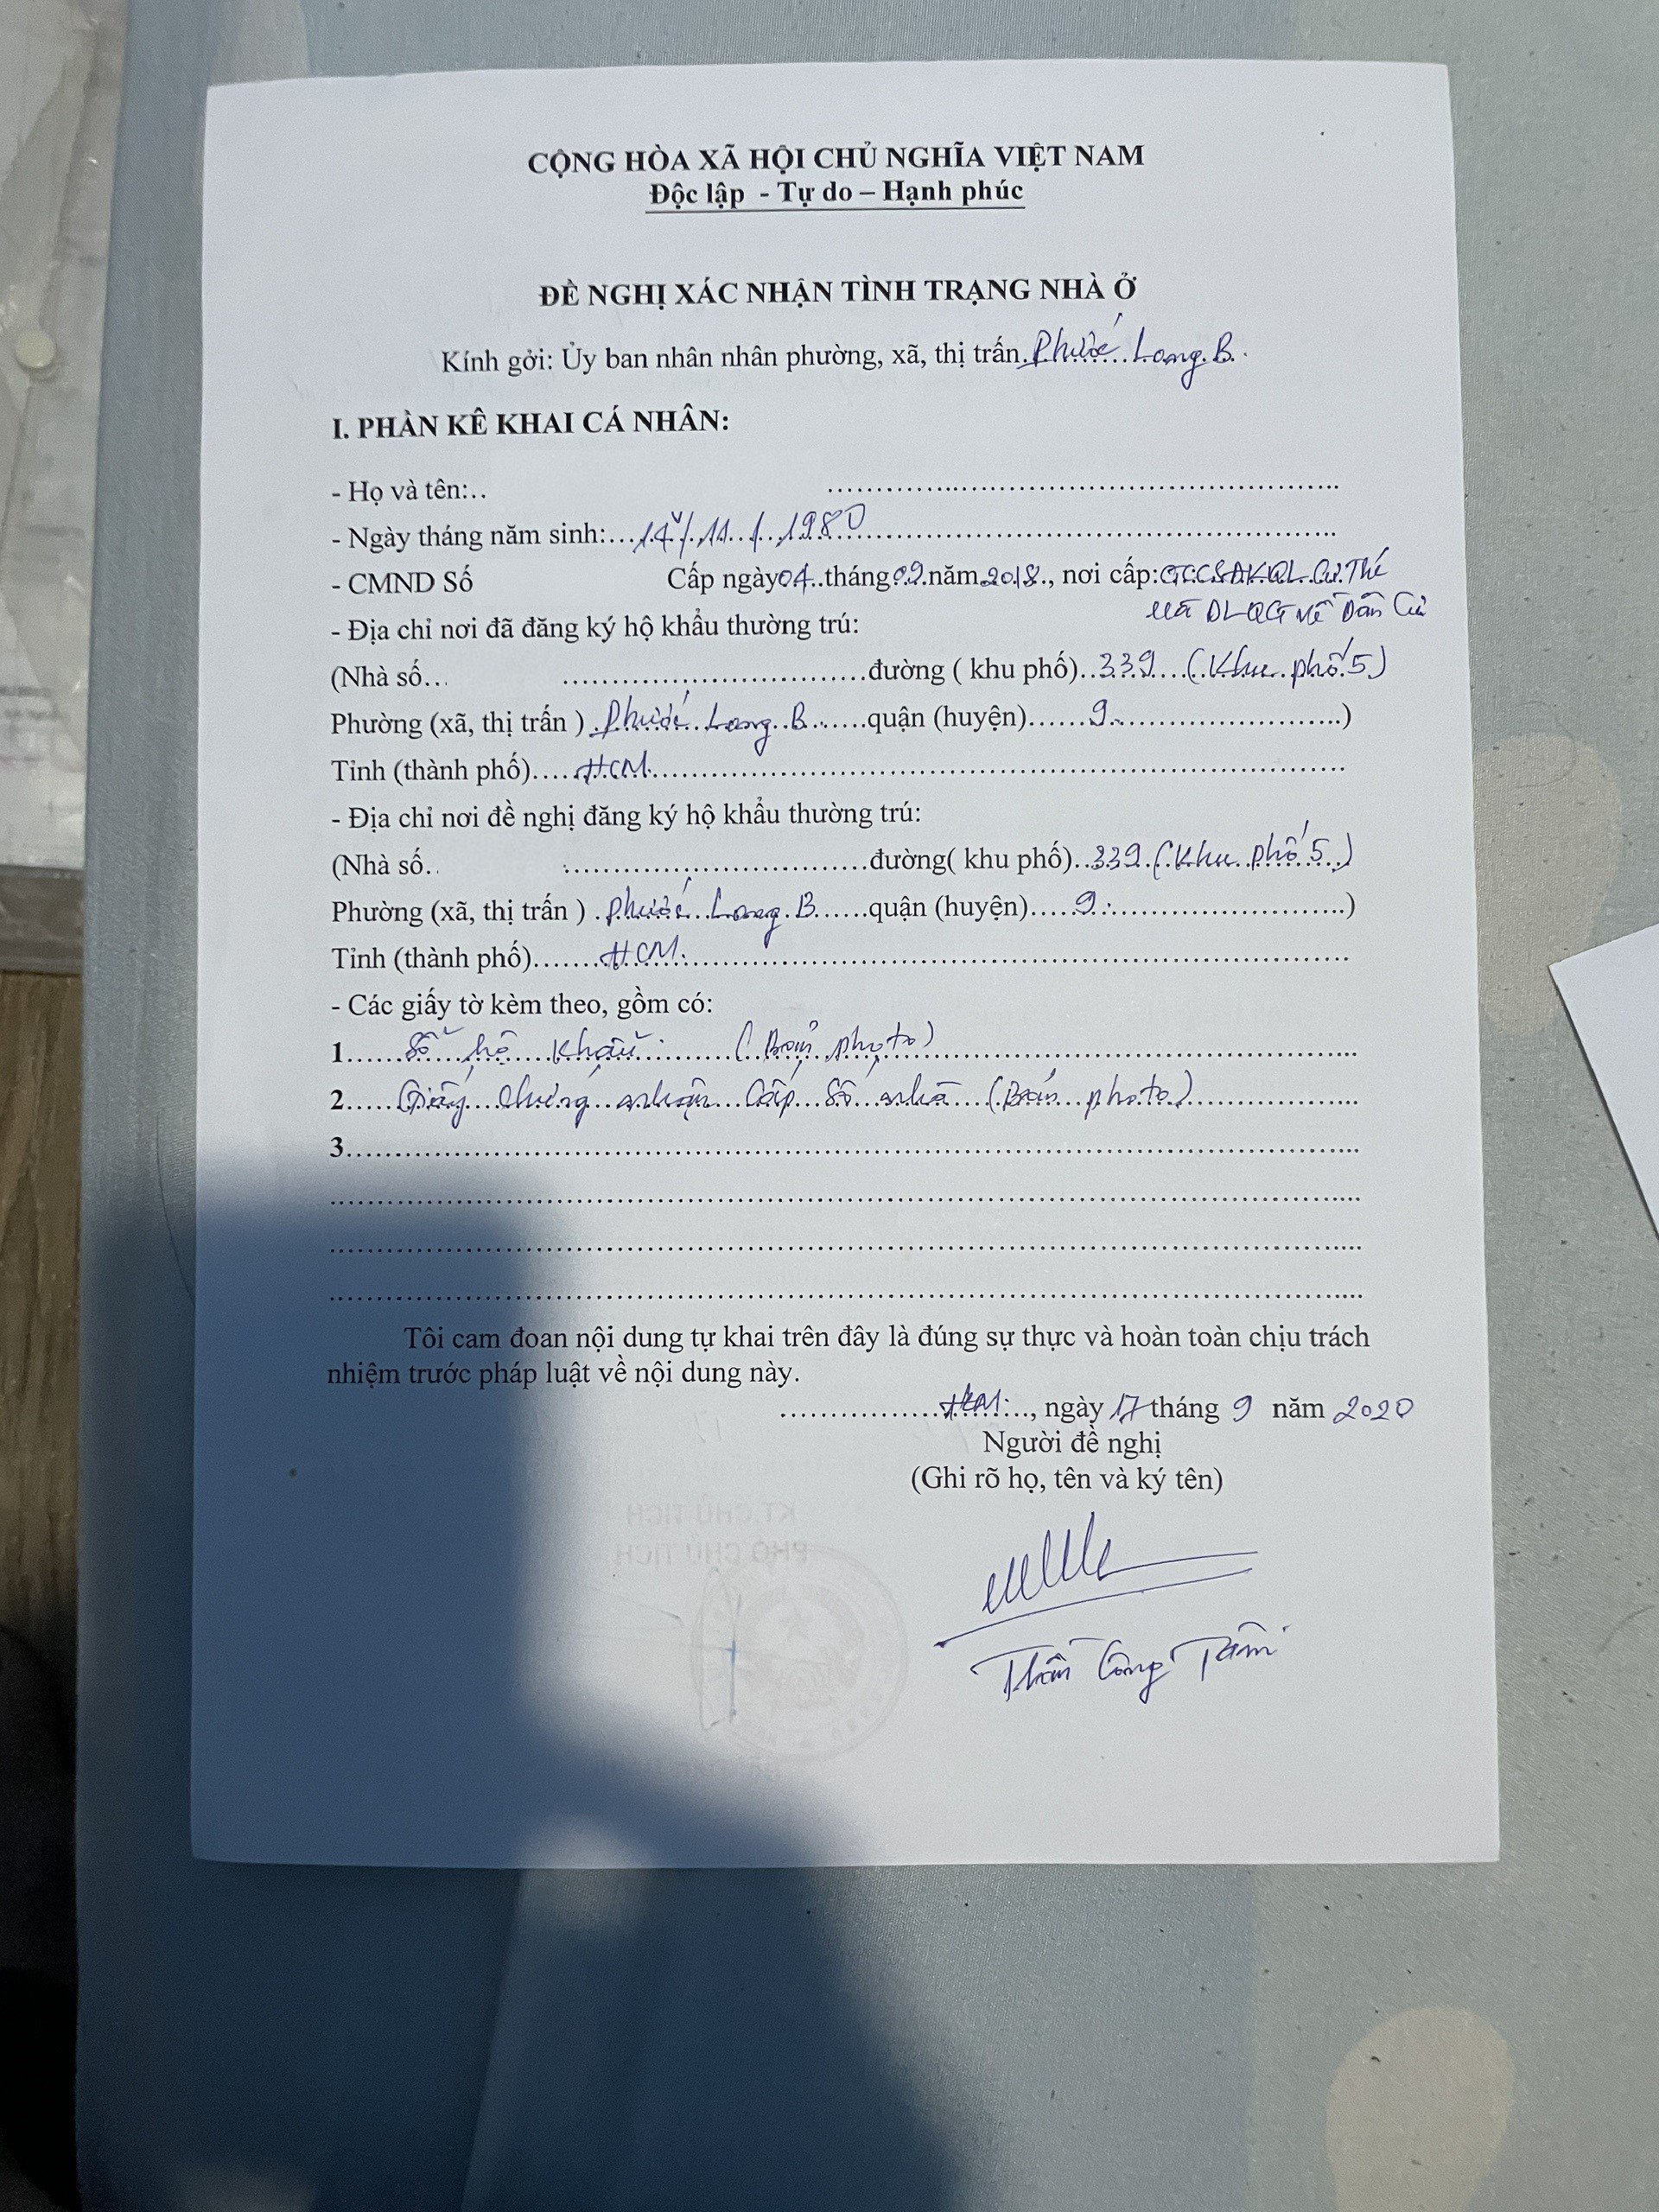 CỘNG HÒA XÃ HỘI CHỦ NGHĨA VIỆT NAM
Độc lập - Tự do – Hạnh phúc
ĐỀ NGHỊ XÁC NHẬN TÌNH TRẠNG NHÀ Ở
Kính gởi: Ủy ban nhân nhân phường, xã, thị trấn Phước Long B.
I. PHẦN KÊ KHAI CÁ NHÂN:
- Họ và tên:
- Ngày tháng năm sinh: 14/11/1980
- CMND Số Cấp ngày 04 tháng 09 năm 2018, nơi cấp: CCSĐKQL Cư Trú
và DLQG về Dân Cư
- Địa chỉ nơi đã đăng ký hộ khẩu thường trú:
(Nhà số… đường ( khu phố) 339 (Khu phố 5)
Phường (xã, thị trấn ) Phước Long B quận (huyện) 9 )
Tỉnh (thành phố) HCM
- Địa chỉ nơi đề nghị đăng ký hộ khẩu thường trú:
(Nhà số đường( khu phố) 339 (Khu phố 5)
Phường (xã, thị trấn ) Phước Long B quận (huyện) 9 )
Tỉnh (thành phố) HCM
- Các giấy tờ kèm theo, gồm có:
1. Sổ hộ khẩu (Bản photo)
2. Giấy chứng nhận cấp số nhà (Bản photo)
3.
Tôi cam đoan nội dung tự khai trên đây là đúng sự thực và hoàn toàn chịu trách
nhiệm trước pháp luật về nội dung này.
HCM, ngày 17 tháng 9 năm 2020
Người đề nghị
(Ghi rõ họ, tên và ký tên)
Công Tâm
KT.CHỦ TỊCH
PHÓ CHỦ TỊCH